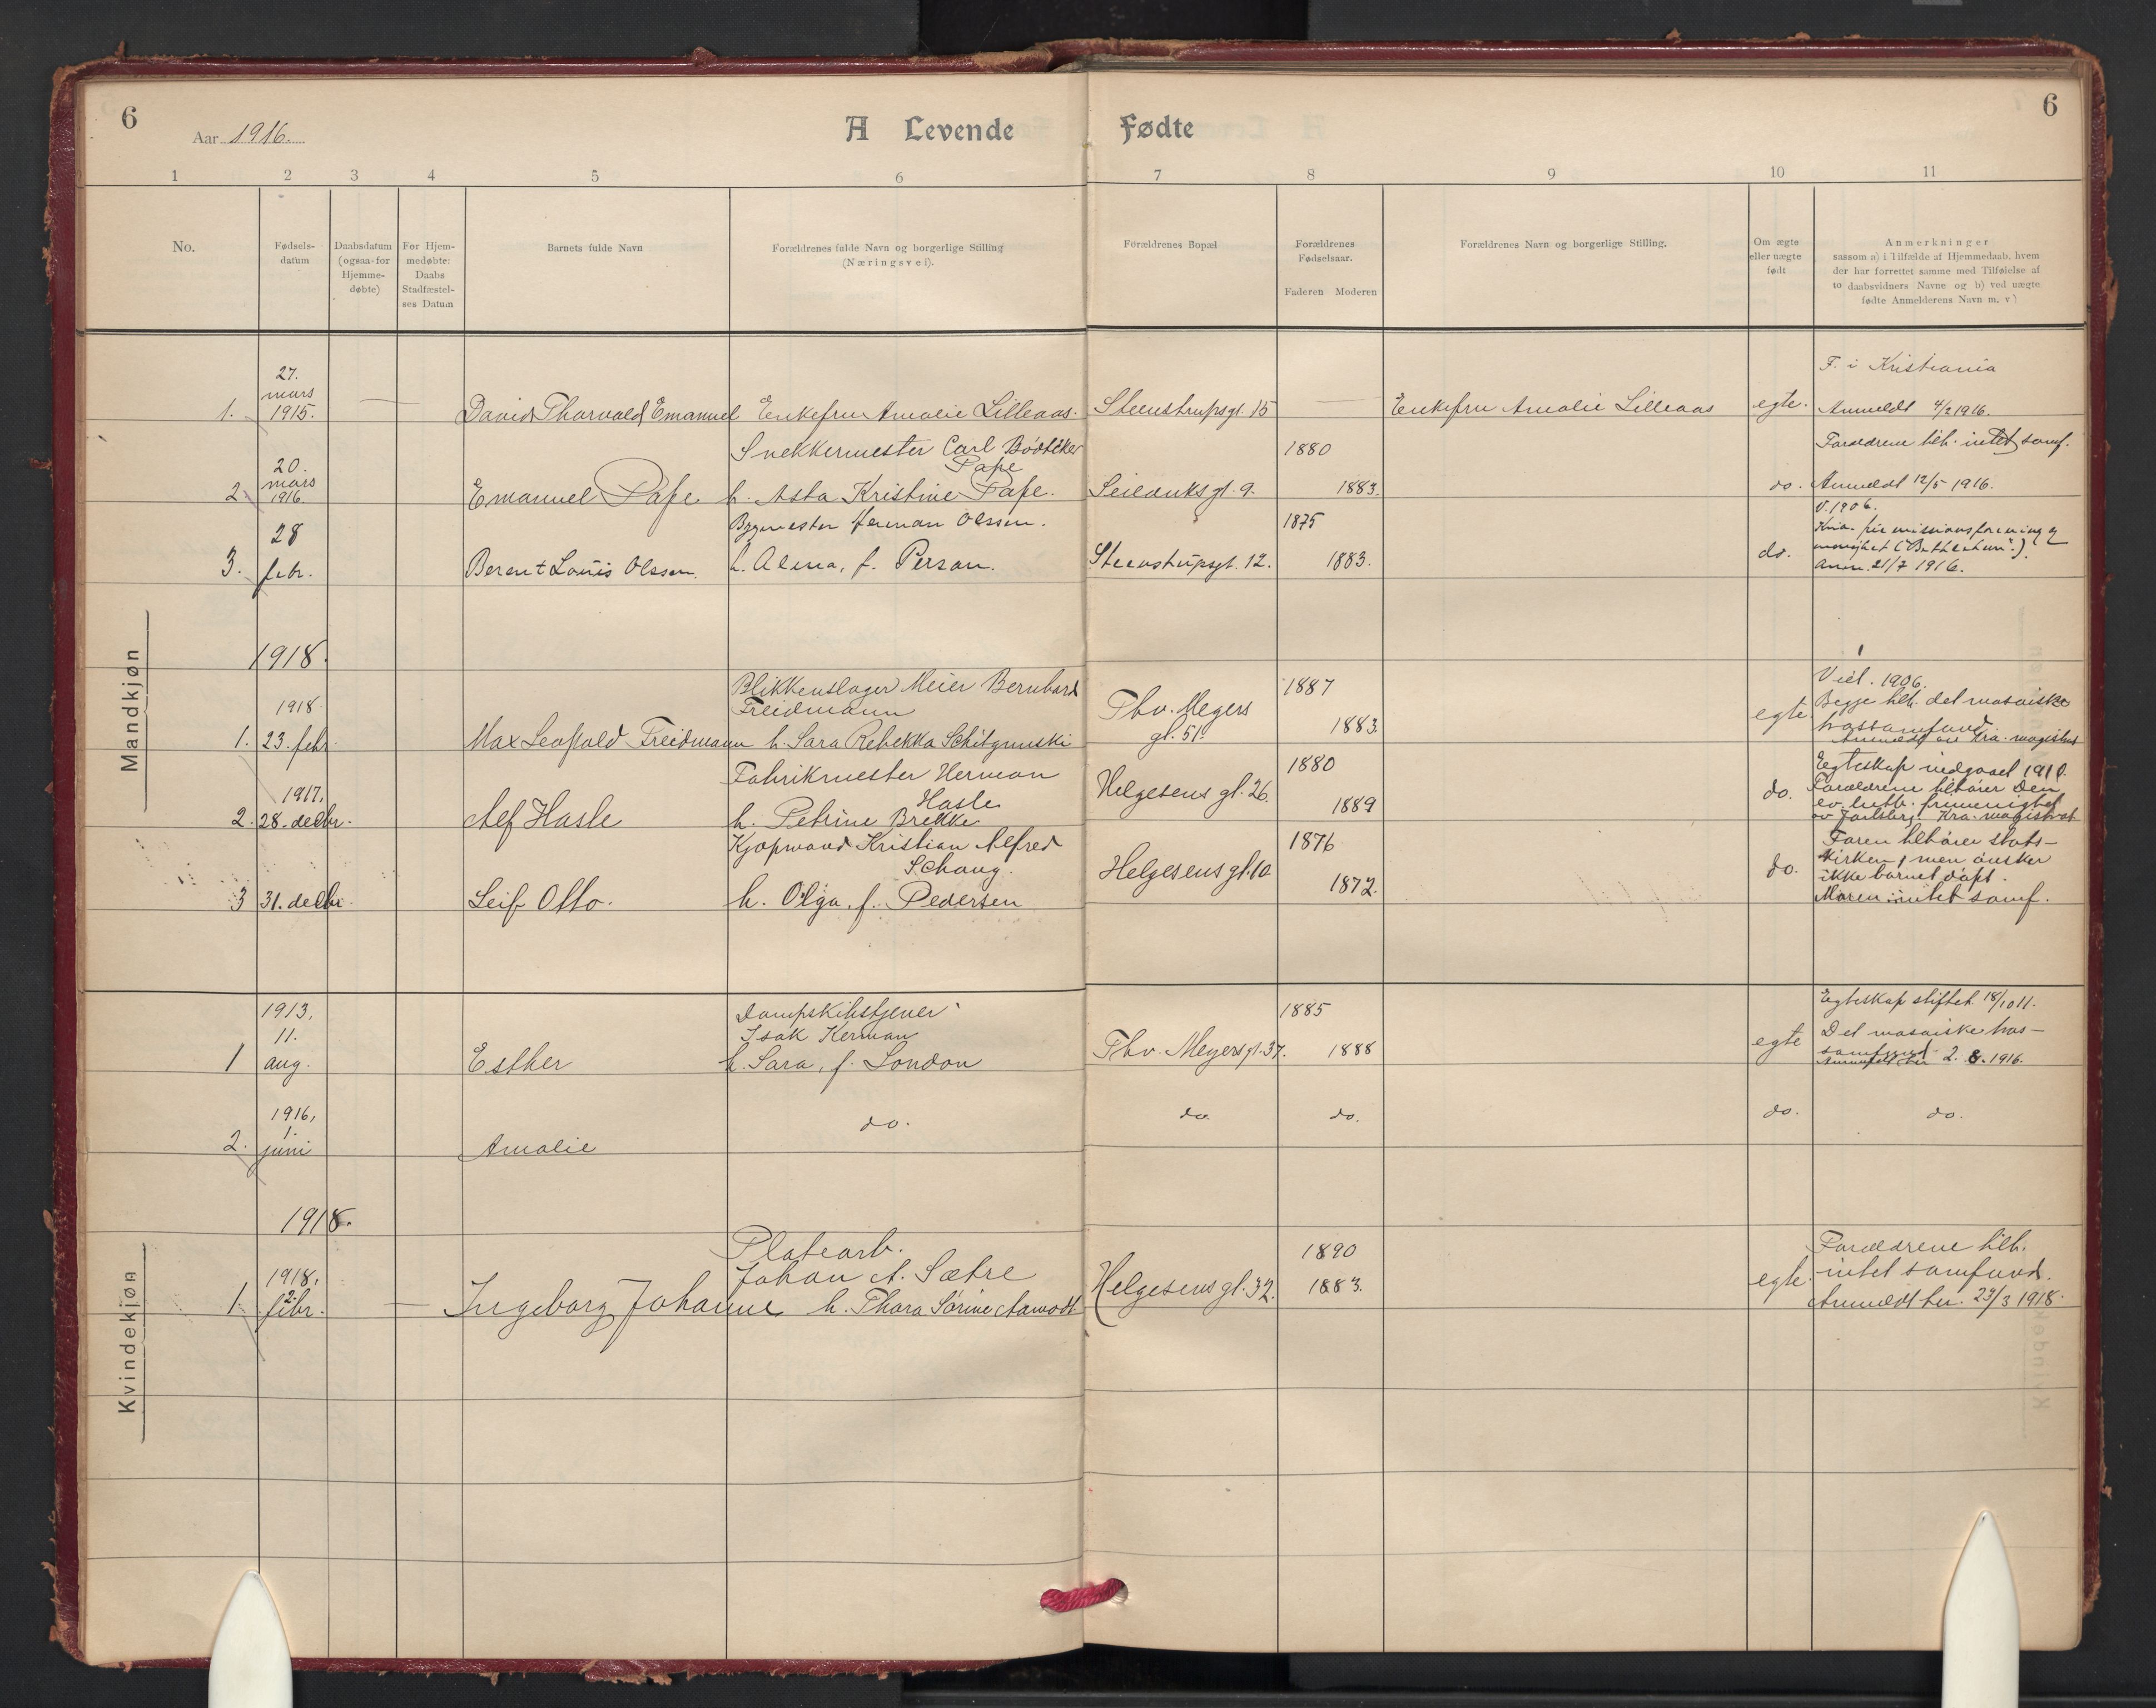 6
Aar 1916.
A Levende Fødte
6
1 2 3 4 5 6 7 8 9 10 11
No.
Fødsels-
datum
Daabsdatum
(ogsaa for
Hjemme-
døbte)
For Hjem-
medøbte:
Daabs
Stadfæstel-
ses Datum
Barnets fulde Navn
Forældrenes fulde Navn og borgerlige Stilling
(Næringsvei).
Forældrenes Bopæl
Forældrenes
Fødselsaar.
Faderen Moderen
Forældrenes Navn og borgerlige Stilling.
Om ægte
eller uægte
født
Anmerkninger
sassom a) i Tilfælde af Hjemmedaab, hvem
der har forrettet samme med Tilføielse af
to daabsvidners Navne og b) ved uægte
fødte Anmelderens Navn m. v.)
Mandkjøn
1.
27.
mars
1915.
David Thorvald Emanuel
Enkefru Amalie Lilleaas.
Steenstrupsgt. 15
Enkefru Amalie Lilleaas
egte.
F. i Kristiania
Anmeldt 4/2 1916.
2.
20.
mars
1916.
Emanuel Pape
Snekkermester Carl Bödtker
Pape
h. Asta Kristine Pape.
Seilduksgt. 9.
1880
1883.
do.
Forældrene tilh. intet samf.
Anmeldt 12/5 1916.
3.
28
febr.
Berent Louis Olssen.
Bygmester Herman Olssen.
h. Alma, f. Persan.
Steenstrupsgt. 12.
1875
1883.
do.
V. 1906.
Kria. frie missionsforening og
menighet ("Bethlehem").
Anm. 21/7 1916.
1918.
1.
1918
23. febr.
Max Leopold Freidmann
Blikkenslager Meier Bernhard
Freidmann
h. Sara Rebekka Schitgunski
Thv. Meyers
gt. 51.
1887
1883.
egte
Viet. 1906.
Begge tilh. det mosaiske
trossamfund.
Kra. magistrat
2.
1917.
28. decbr.
Alf Hasle
Fabrikmester Herman
Hasle
h. Petrine Brekke
Helgesens gt. 26.
1880
1889
do.
Egteskap indgaaet 1910.
Forældrene tilhører Den
ev. luth. frimenighet
av Jarlsberg. Kra. magistrat
3
31. decbr.
Leif Otto.
Kjøpmand Kristian Alfred
Schaug.
h. Olga, f. Pedersen
Helgesens gt. 10
1876
1872.
do.
Faren tilhører stats-
kirken, men ønsker
ikke barnet døpt.
Moren: intet samf.
Kvindekjøn
1
1913,
11.
aug.
Esther
Dampskibstjener
Isak Kerman
h. Sara, f. London
Thv. Meyersgt. 37.
1885
1888
egte
Egteskap stiftet 18/10 11.
Det mosaiske tros-
samfund
Anmeldt her 2. 8. 1916.
2.
1916,
1.
juni
Amalie
do.
do.
do.
do.
do.
1918.
1.
1918,
2.
febr.
Ingeborg Johanne
Platearb.
Johan A. Sætre
h. Thora Sørine Aamodt
Helgesens gt. 32.
1890
1883.
egte.
Forældrene tilh.
intet samfund.
Anmeldt her. 23/3 1918.